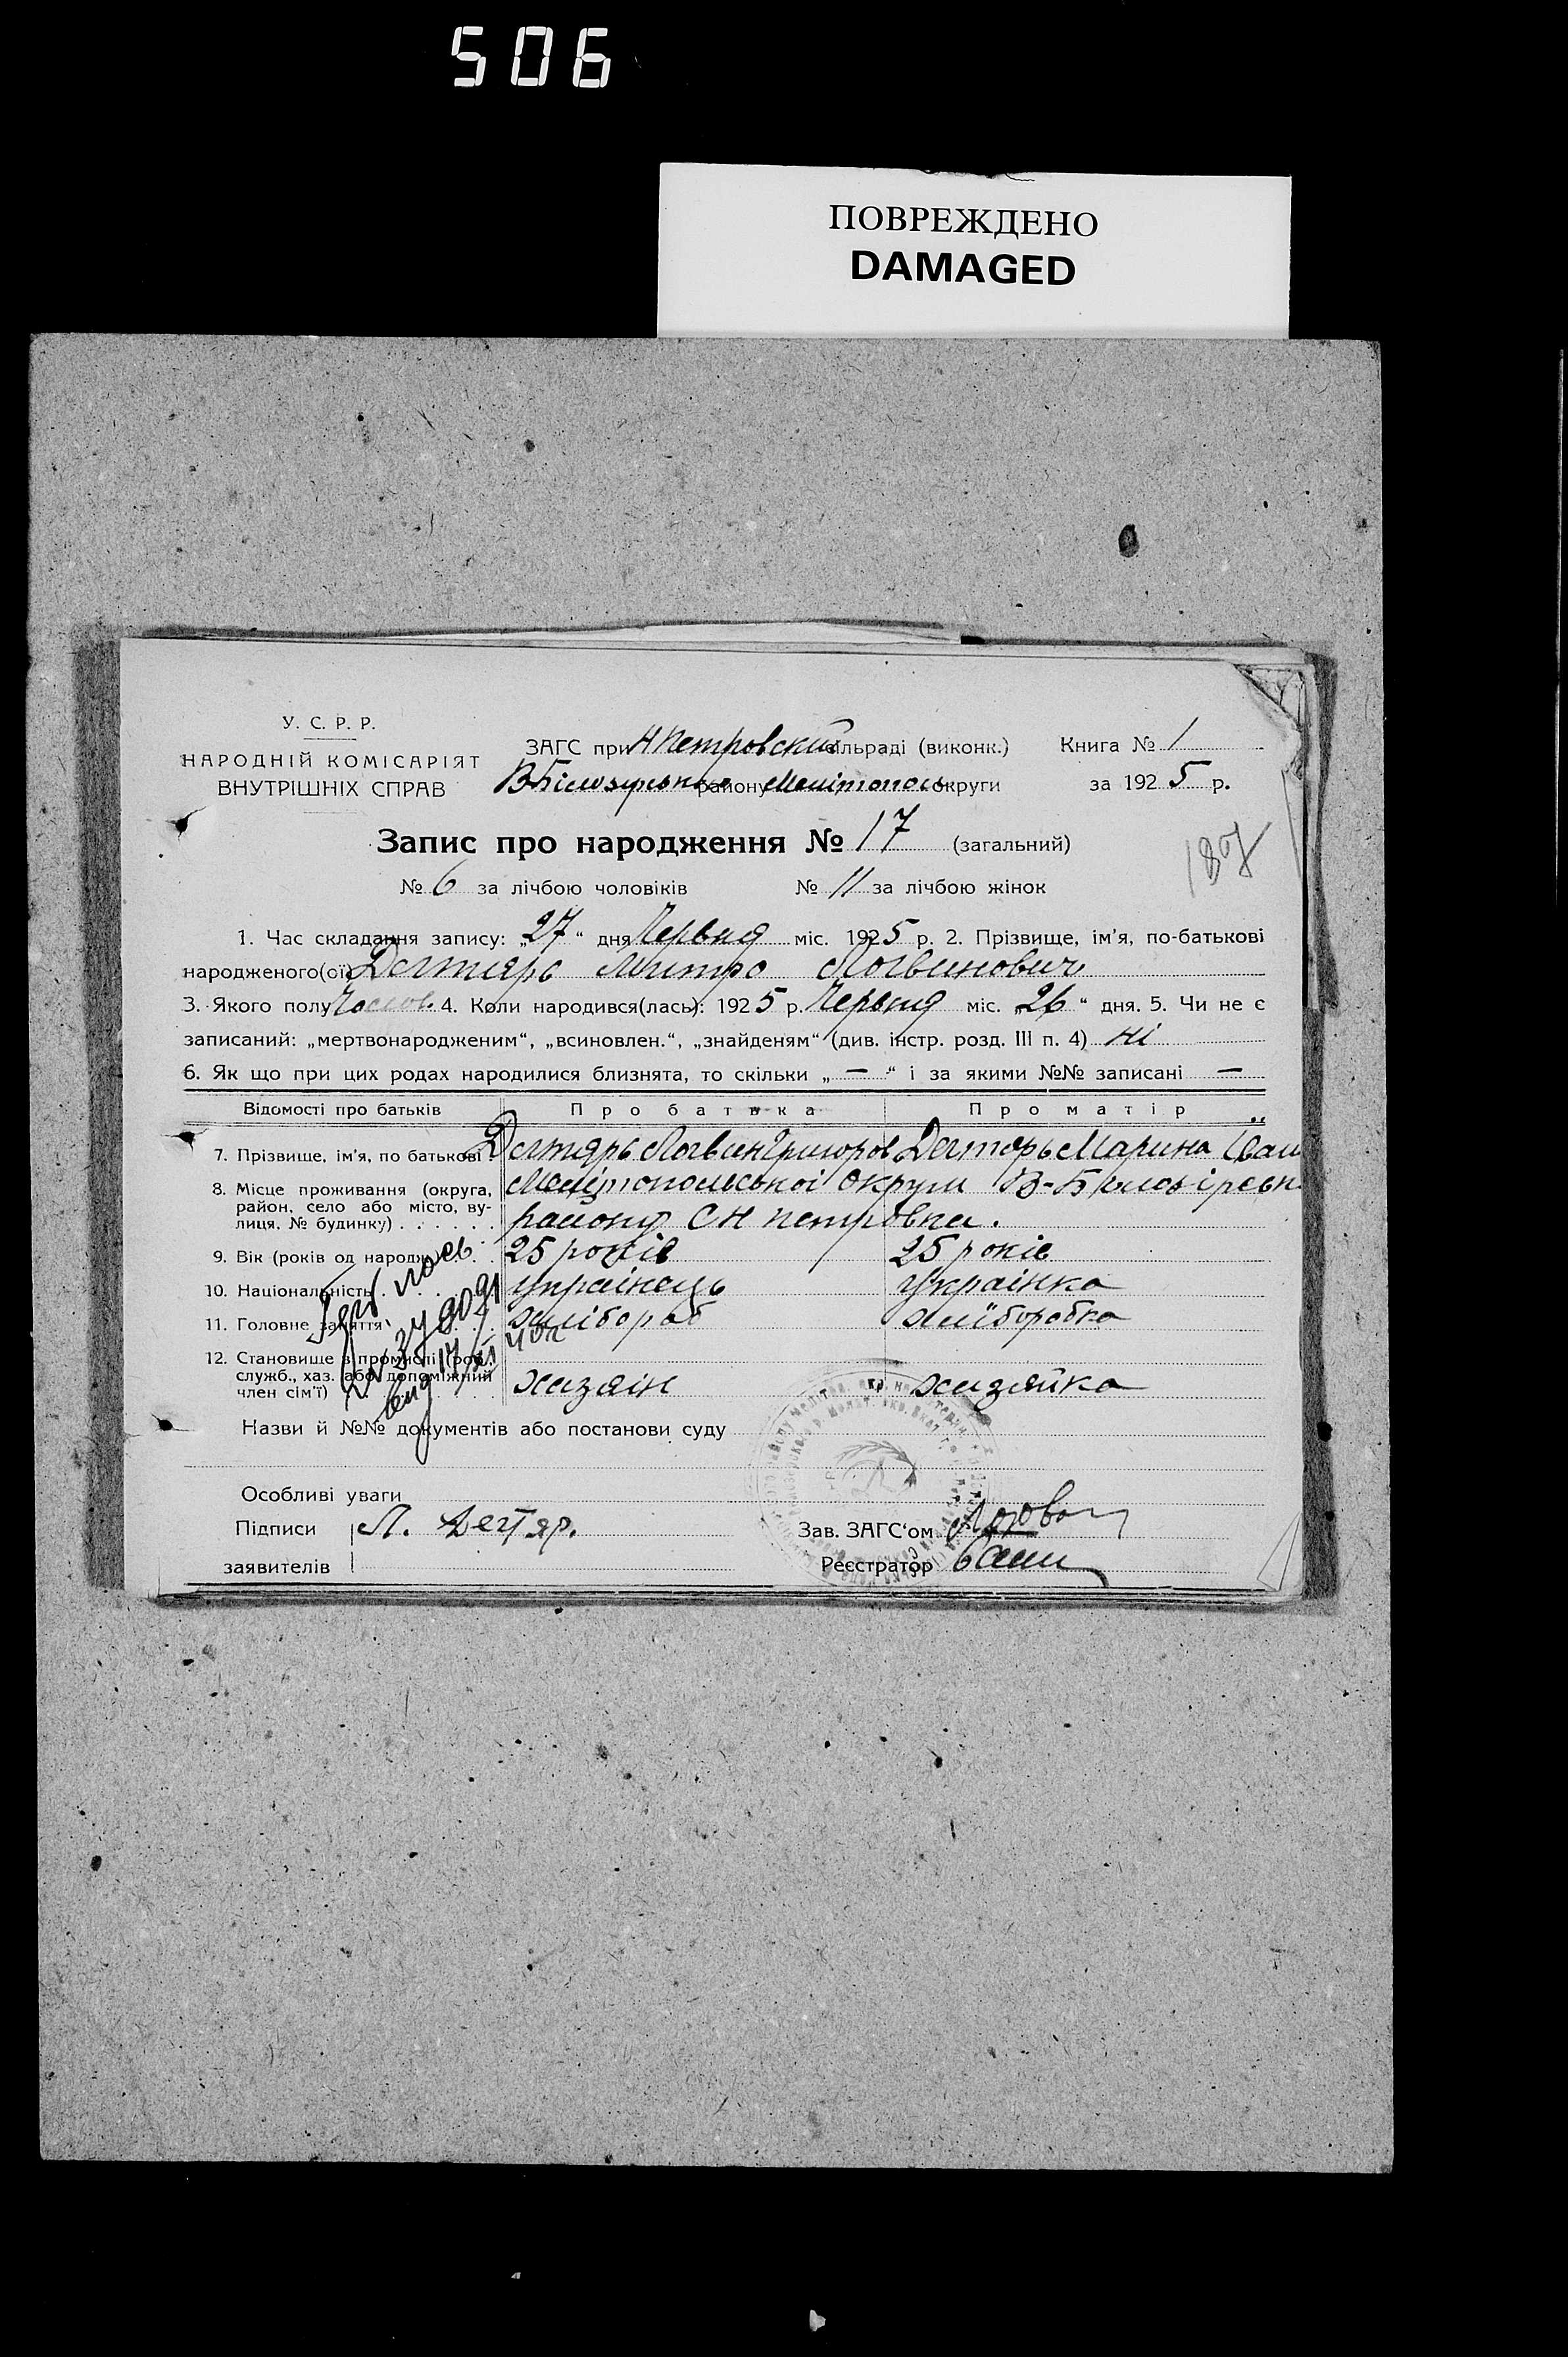 506
ПОВРЕЖДЕНО
DAMAGED
У. С. Р. Р.
НАРОДНІЙ КОМІСАРІЯТ
ВНУТРІШНІХ СПРАВ
ЗАГС при Н Петровский сільраді (виконк.) Книга № 1
району Мелітополь округи за 1925 р.
Запис про народження № 17 (загальний)
187
№ 6 за лічбою чоловіків № 11 за лічбою жінок
1. Час складання запису: „27“ дня Червня міс. 1925 р. 2. Прізвище, ім’я, по-батькові
народженого(ої) Дегтярь Митро Логвинович
3. Якого полу Чолов. 4. Коли народився(лась): 1925 р. Червня міс. „26“ дня. 5. Чи не є
записаний: „мертвонародженим“, „всиновлен.“, „знайденям“ (див. інстр. розд. III п. 4) ні
6. Як що при цих родах народилися близнята, то скільки „—“ і за якими №№ записані —
Відомості про батьків Про батька Про матір
7. Прізвище, ім’я, по батькові Дегтярь Логвин Григоров Дегтярь Марина Іван
8. Місце проживання (округа, район, село або місто, вулиця, № будинку) Мелітопольської округи
району С Н петровка.
9. Вік (років од народж.) 25 років 25 років
10. Національність українець Українка
11. Головне заняття хлібороб хліборобка
12. Становище в промислі (роб., служб., хаз. або допоміжний член сім’ї) хазяін хазяйка
Назви й №№ документів або постанови суду
Особливі уваги
Підписи Л. Дегтяр. Зав. ЗАГС‘ом
заявителів Реєстратор